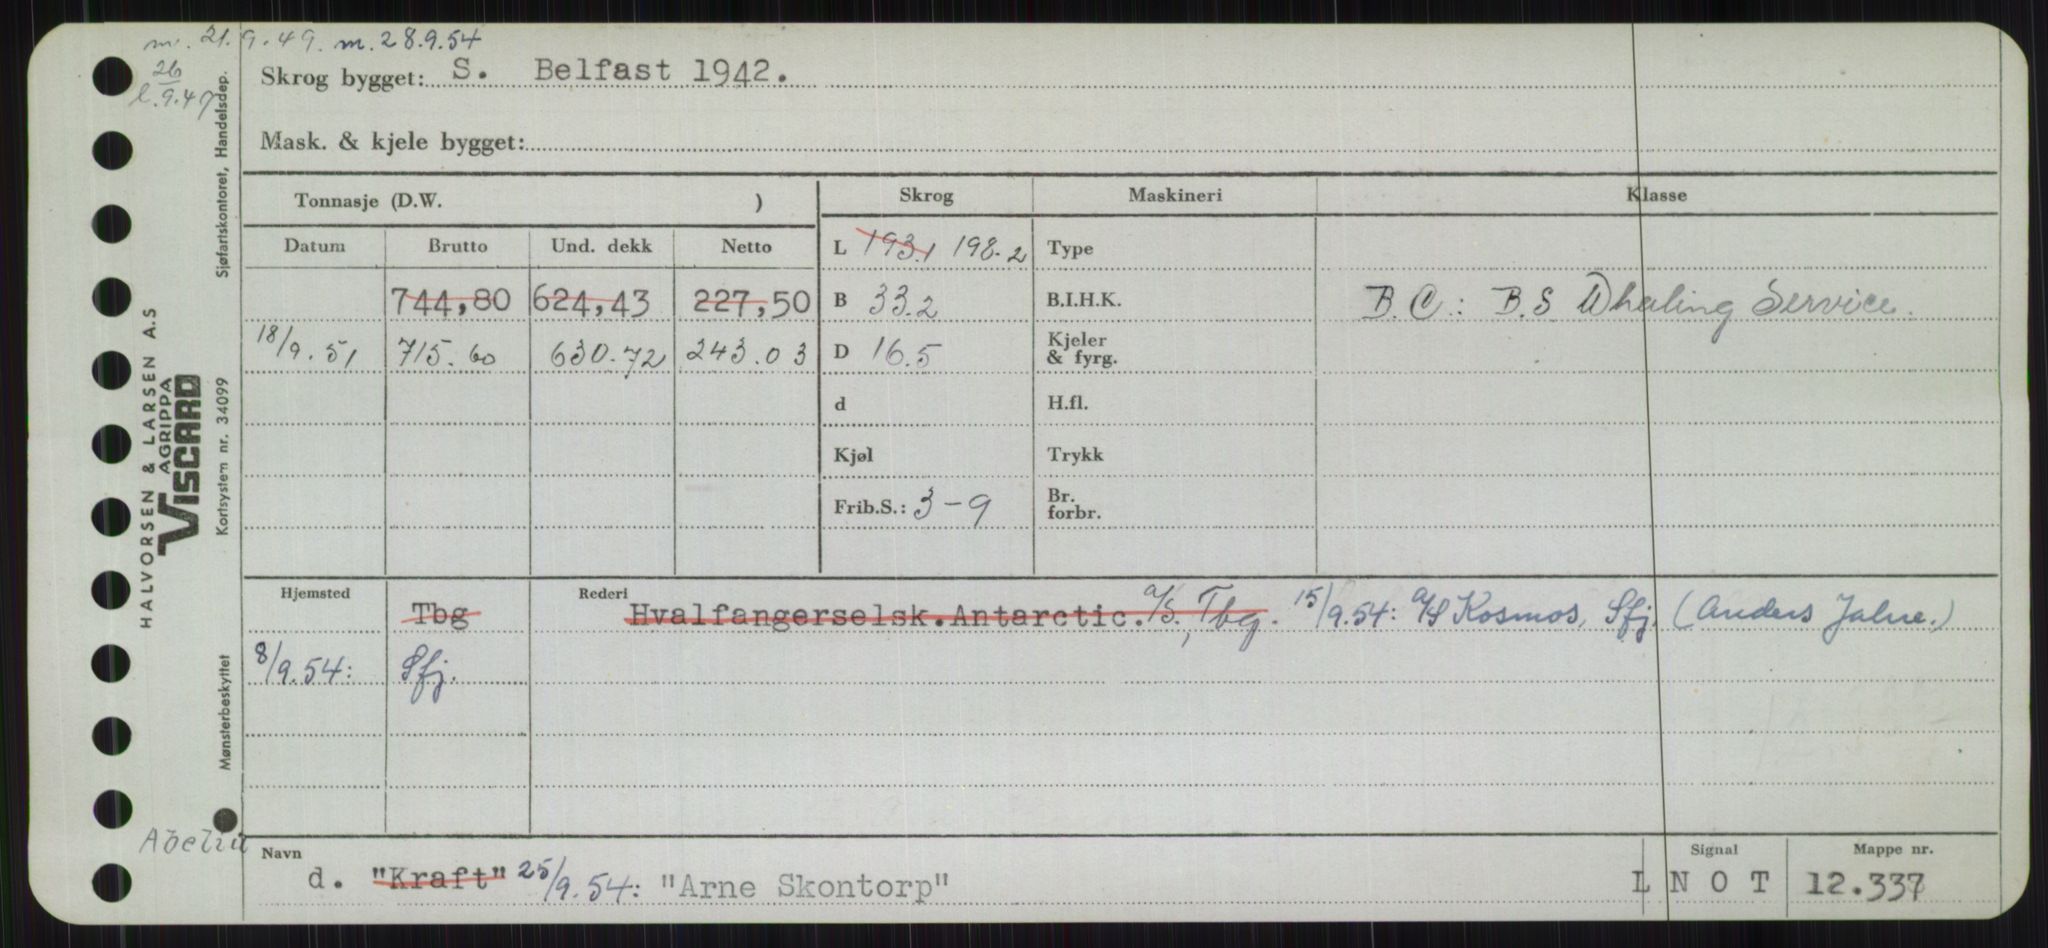 m. 21.9.49. m. 28.9.54
26
l. 9.47
Skrog bygget: S. Belfast 1942.
Mask. & kjele bygget:
Tonnasje (D.W. )
Skrog
Maskineri
Klasse
Datum Brutto Und. dekk Netto
L 193.1 198.2
Type
744,80 624,43 227,50
B 33.2
B.I.H.K.
B.C: B.S Whaling Service.
18/9.51 715.60 630.72 243.03
D 16.5
Kjeler
& fyrg.
d
H.fl.
Kjøl
Trykk
Frib.S.: 3-9
Br.
forbr.
Hjemsted
Tbg
Rederi
Hvalfangerselsk.Antarctic. A/S, Tbg. 15/9.54: A/S Kosmos, Sfj. (Anders Jahre.)
8/9.54: Sfj.
Abelia
Navn
d. "Kraft" 25/9.54: "Arne Skontorp"
Signal
L N O T
Mappe nr.
12.337
HALVORSEN & LARSEN A.S
AGRIPPA
VISCARD
Sjøfartskontoret, Handelsdep.
Kortsystem nr. 34099
Mønsterbeskyttet